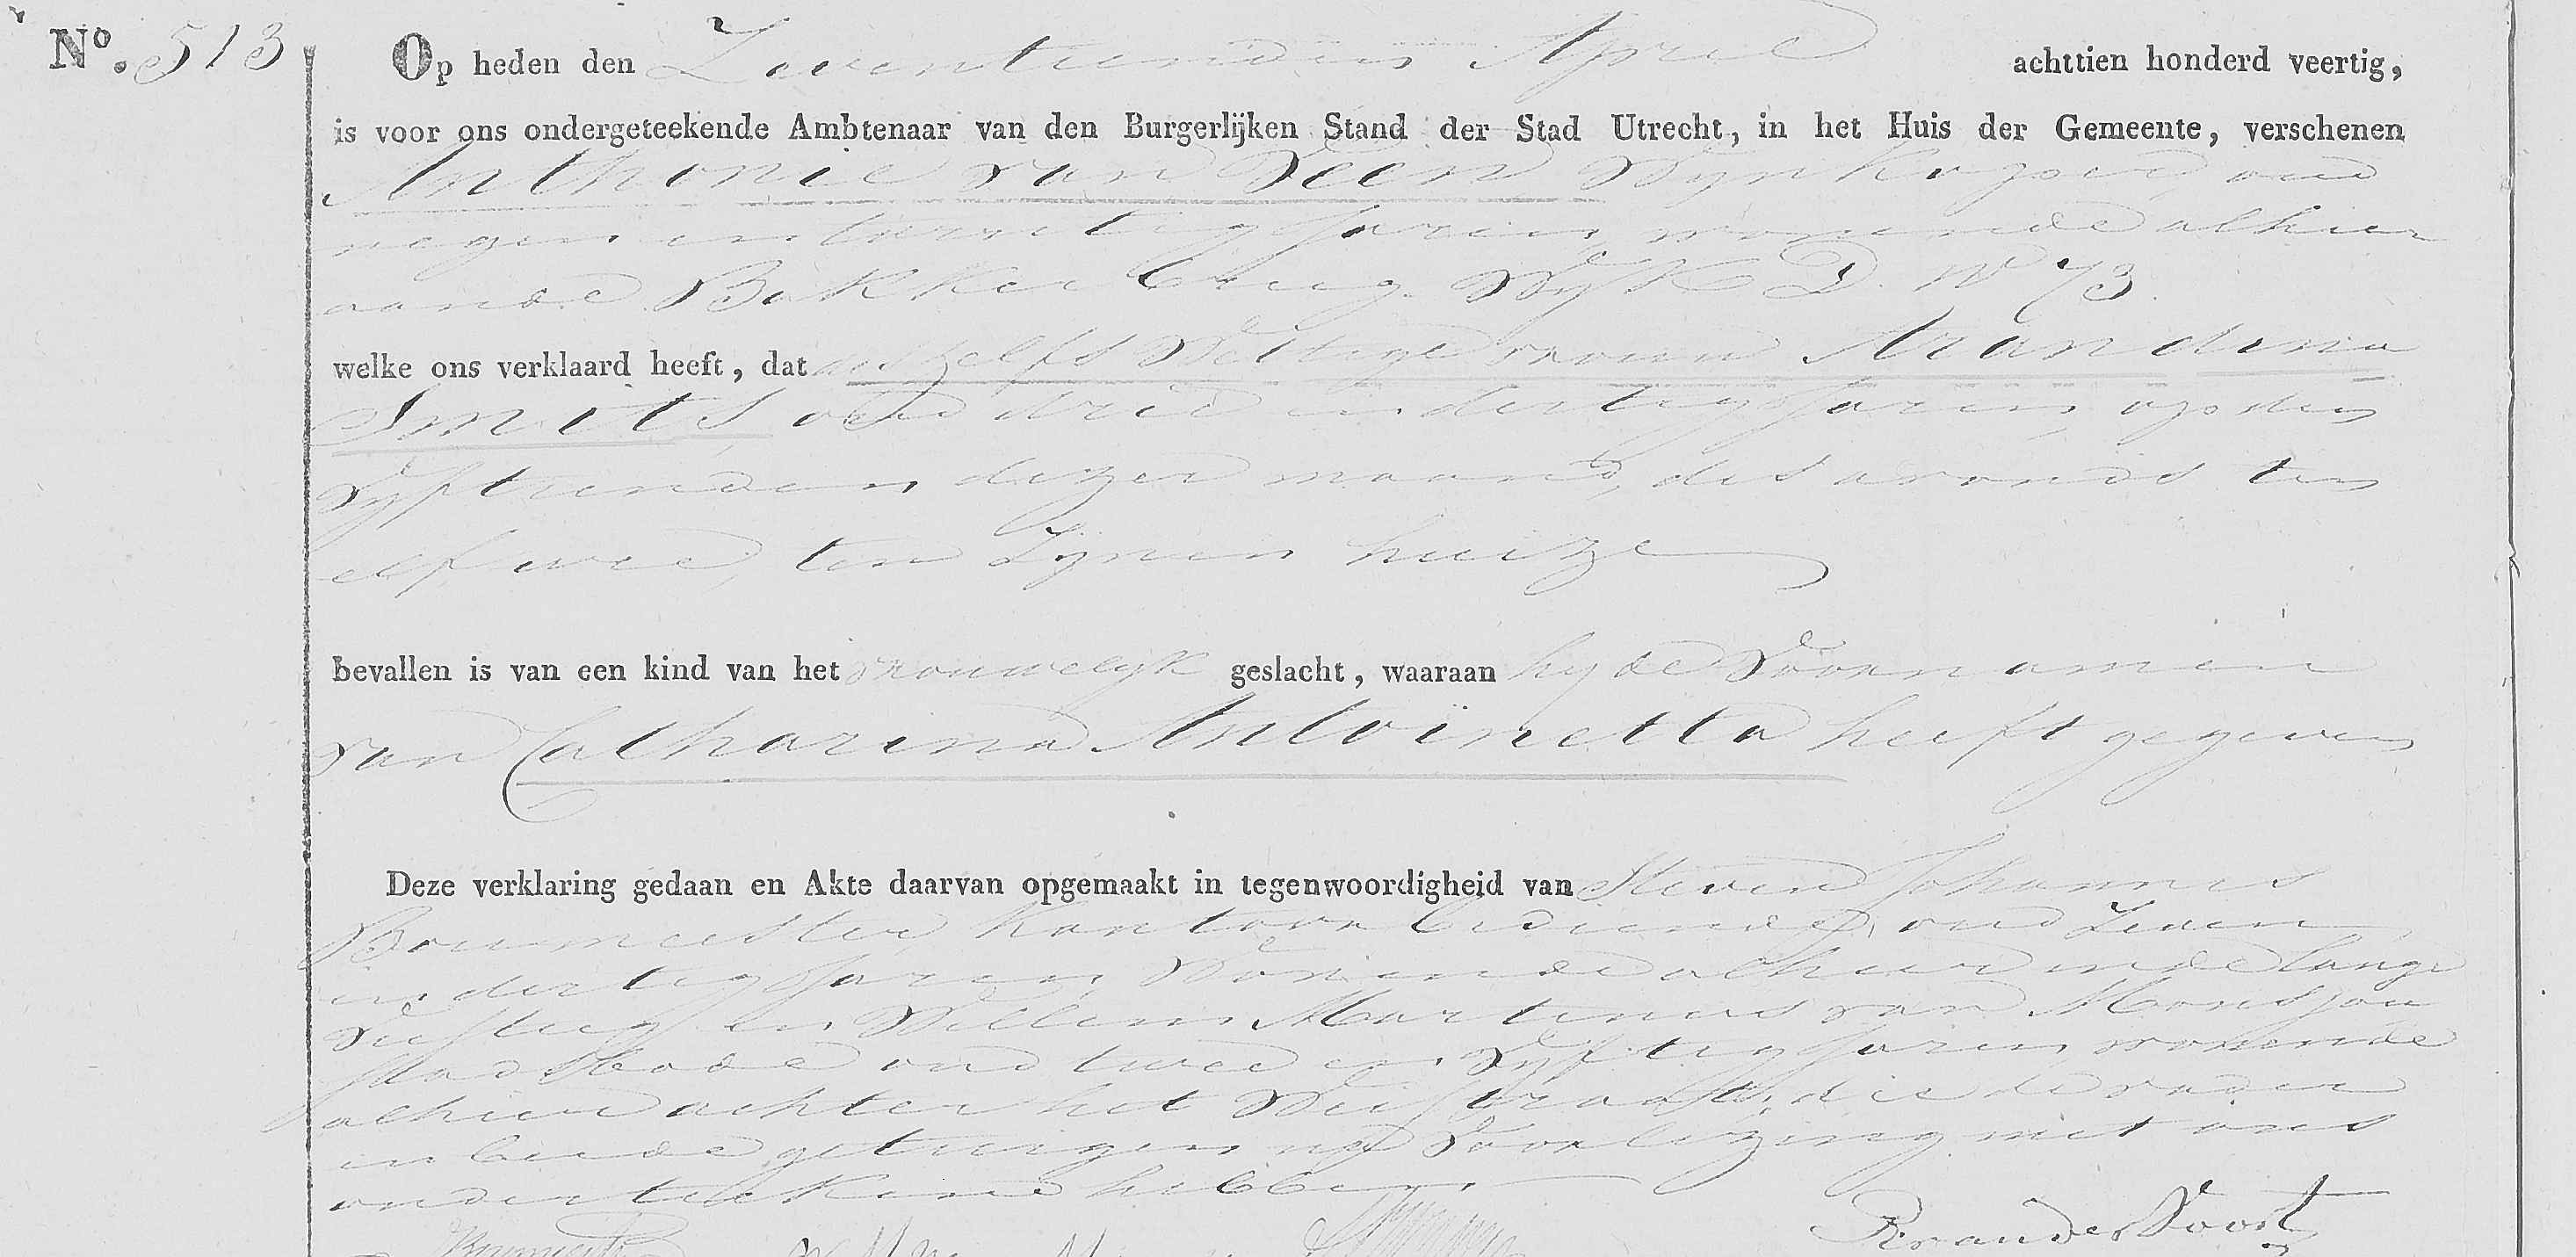 No. 513 Op heden den Zeventienden April achttien honderd veertig,
is voor ons ondergeteekende Ambtenaar van den Burgerlijken Stand der Stad Utrecht, in het Huis der Gemeente, verschenen
Anthonie van Veen Wynkoper, oud
negen en twintig Jaren, wonende alhier
aan de Bakkerbrug Wyk D. No 73.
welke ons verklaard heeft, dat deszelfs Wettige vrouw Arandina
Smits oud drie en dertig Jaren, op den
Vyftienden dezer maand, des avonds ten
elf ure, ten Zynen huize
bevallen is van een kind van het vrouwelyk geslacht, waaraan hy de Voornamen
van Catharina Antoïnetta heeft gegeven
Deze verklaring gedaan en Akte daarvan opgemaakt in tegenwoordigheid van Steven Johannes
Bouwmeester, Kantoorbediende, oud Zeven
en dertig Jaren, Wonende alhier in de lange
Viesteeg en Willem Martinus van Monsjou
Stadsbode oud twee en Vyftig Jaren wonende
alhier achter het Weistraat, die de vader
en beide getuigen na Voorlezing met ons
onderteekend hebben.
van der Voort